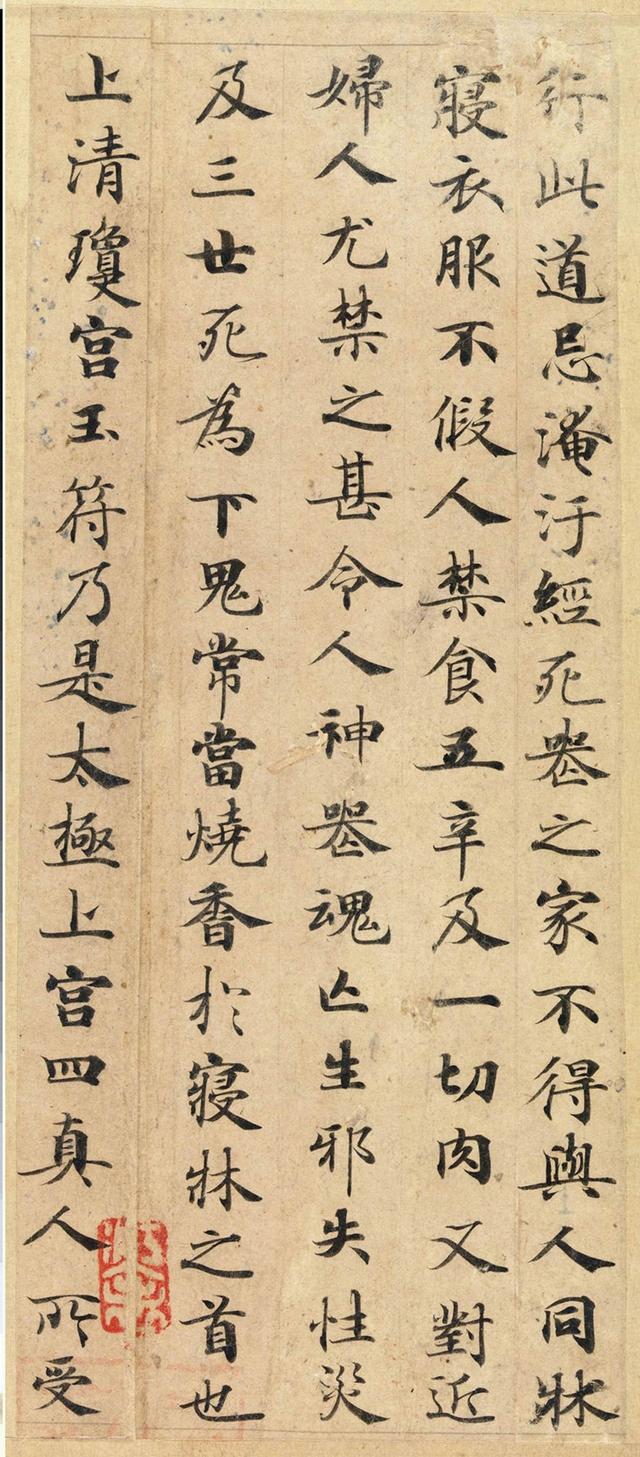 行此道忌淹汙經死喪之家不得與人同牀
寢衣服不假人禁食五辛及一切肉又對近
婦人尤禁之甚令人神喪魂亡生邪失性災
及三世死為下鬼常當燒香於寢牀之首也
上清瓊宮玉符乃是太極上宮四真人所受